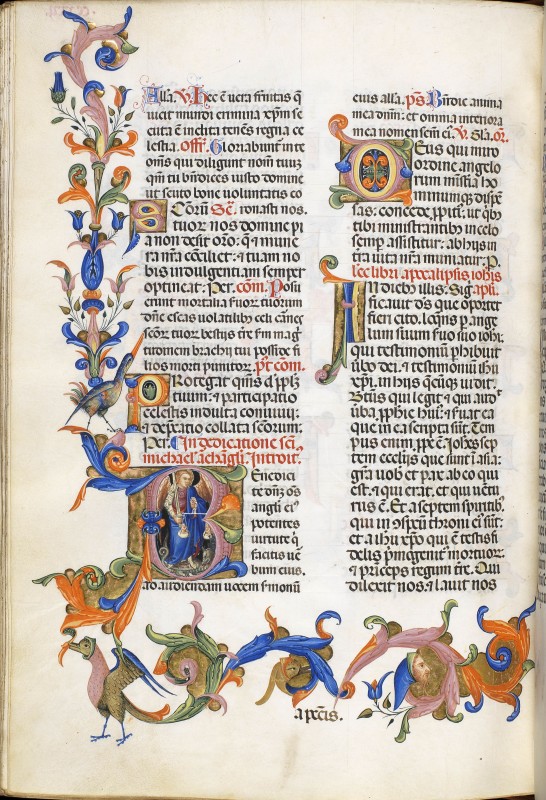 Alla. V. Hec ē uera frīnitas q̄
uicit mundi crimina xp̄m se
cuta ē inclita tenēs regna ce
lestia. off͞. Gloriabunt in te
om̄s qui diligunt nom̄ tuū
qm̄ tu bn̄dices iusto domine
ut scuto bone uoluntatis co
SCōrū Sc̄. ronasti nos.
tuor nos domine pi
a non desit or̄o: q̄ ⁊ mune
ra nr̄a cōciliet: ⁊ tuam no
bis indulgentiam semper
optineat. Per. com̄. Posu
erunt mortalia suor tuorum
dn̄e escas uolatilib; celi carnes
sc̄or tuor bestijs tr̄e sm̄ mag
nitudinem brachij tui posside fi
lios morti punitor. pt com̄.
Protegat qs̄ dn̄e pp̄lm
tuum: ⁊ participatio
celestis indulta conuiuij:
⁊ deprecatio collata sc̄orum.
Per. In dedicatione scī
michael archāgli. Introit.
Benedici
te dn̄z om̄s
angli ei⁹
potentes
uirtute q̄
facitis uē
bum eius.
ad audiendam uocem s̄monū
eius alla. ps̄. Bn̄dic anima
mea dn̄m: ⁊ omnia interiora
mea nomen scm̄ ei⁹. V. Gla. or̄.
Deus qui miro
ordine angelo
rum mīstīa ho
minumque dispē
sas: concede, ppiti⁹: ut q̄b;
tibi ministrantibus in celo
semp assistitur: ab hijs in
tra uita nr̄a muniatur. P.
Lcc̄ libri apocalipsis iohīs
In diebus illis: Sig apli.
ficauit ds̄ que oportet
fieri cito. lcq̄ns p ange
lum suum suo iohī:
qui testimoniū phibuit
ubo dei. ⁊ testimoniū ihu
xpī. in hijs q̄cūq; uidit.
Btūs qui legit ⁊ qui audit
ūba. pphie hui⁹: ⁊ suat ea
que in ea scripta sūt: Tem
pus enim. ppe ē. Johēs sep
tem ecclijs que sunt ī asia:
grā uob ⁊ pax ab eo qui
est. ⁊ qui erat. ⁊ qui uētu
rus ē. Et a septem spiritib⁹
qui in ɔspcū throni ei⁹ sūt:
et a ihu xpō qui ē testis fi
delis pmogenit⁹ mortuor:
⁊ p̄nceps regum tr̄e. Qui
dilexit nos. ⁊ lauit nos
a pccīs.